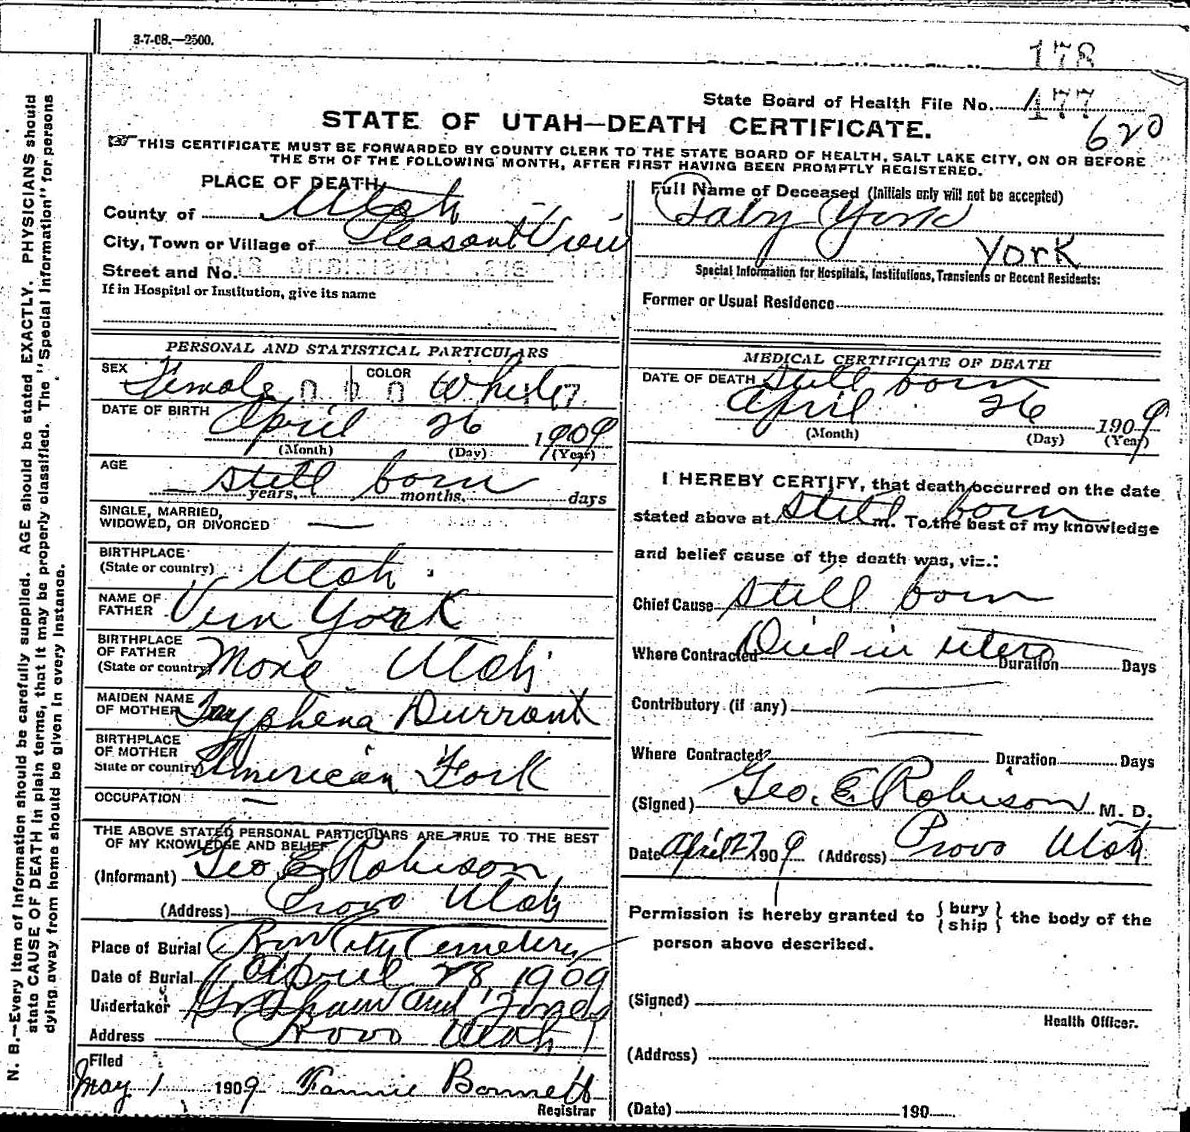 3-7-08.—2500.
178
State Board of Health File No. 177
620
STATE OF UTAH—DEATH CERTIFICATE.
THIS CERTIFICATE MUST BE FORWARDED BY COUNTY CLERK TO THE STATE BOARD OF HEALTH, SALT LAKE CITY, ON OR BEFORE
THE 5TH OF THE FOLLOWING MONTH, AFTER FIRST HAVING BEEN PROMPTLY REGISTERED.
PLACE OF DEATH,
County of Utah
City, Town or Village of Pleasant View
Street and No.
If in Hospital or Institution, give its name
PERSONAL AND STATISTICAL PARTICULARS
SEX Female COLOR White
DATE OF BIRTH April 26 1909
(Month) (Day) (Year)
AGE still born
years, months, days
SINGLE, MARRIED,
WIDOWED, OR DIVORCED —
BIRTHPLACE
(State or country) Utah
NAME OF
FATHER Vern York
BIRTHPLACE
OF FATHER
(State or country) Mona Utah
MAIDEN NAME
OF MOTHER Durrant
BIRTHPLACE
OF MOTHER
State or country American Fork
OCCUPATION —
THE ABOVE STATED PERSONAL PARTICULARS ARE TRUE TO THE BEST
OF MY KNOWLEDGE AND BELIEF
(Informant) Geo E Robison
(Address) Provo Utah
Place of Burial Provo City Cemetery
Date of Burial April 28, 1909
Undertaker Graham and Jones
Address Provo Utah
Filed
May 1 1909 Fannie Bonnett
Registrar
Full Name of Deceased (Initials only will not be accepted)
Baby York
York
Special Information for Hospitals, Institutions, Transients or Recent Residents:
Former or Usual Residence
MEDICAL CERTIFICATE OF DEATH
DATE OF DEATH still born
April 26 1909
(Month) (Day) (Year)
I HEREBY CERTIFY, that death occurred on the date
stated above at still born m. To the best of my knowledge
and belief cause of the death was, viz.:
Chief Cause still born
Where Contracted Died in utero Duration Days
Contributory (if any)
Where Contracted? Duration Days
(Signed) Geo. E. Robison M. D.
Date April 27 1909 (Address) Provo Utah
Permission is hereby granted to { bury ship } the body of the
person above described.
(Signed)
Health Officer.
(Address)
(Date) 190
N. B.—Every item of information should be carefully supplied. AGE should be stated EXACTLY. PHYSICIANS should
state CAUSE OF DEATH in plain terms, that it may be properly classified. The "Special Information" for persons
dying away from home should be given in every instance.